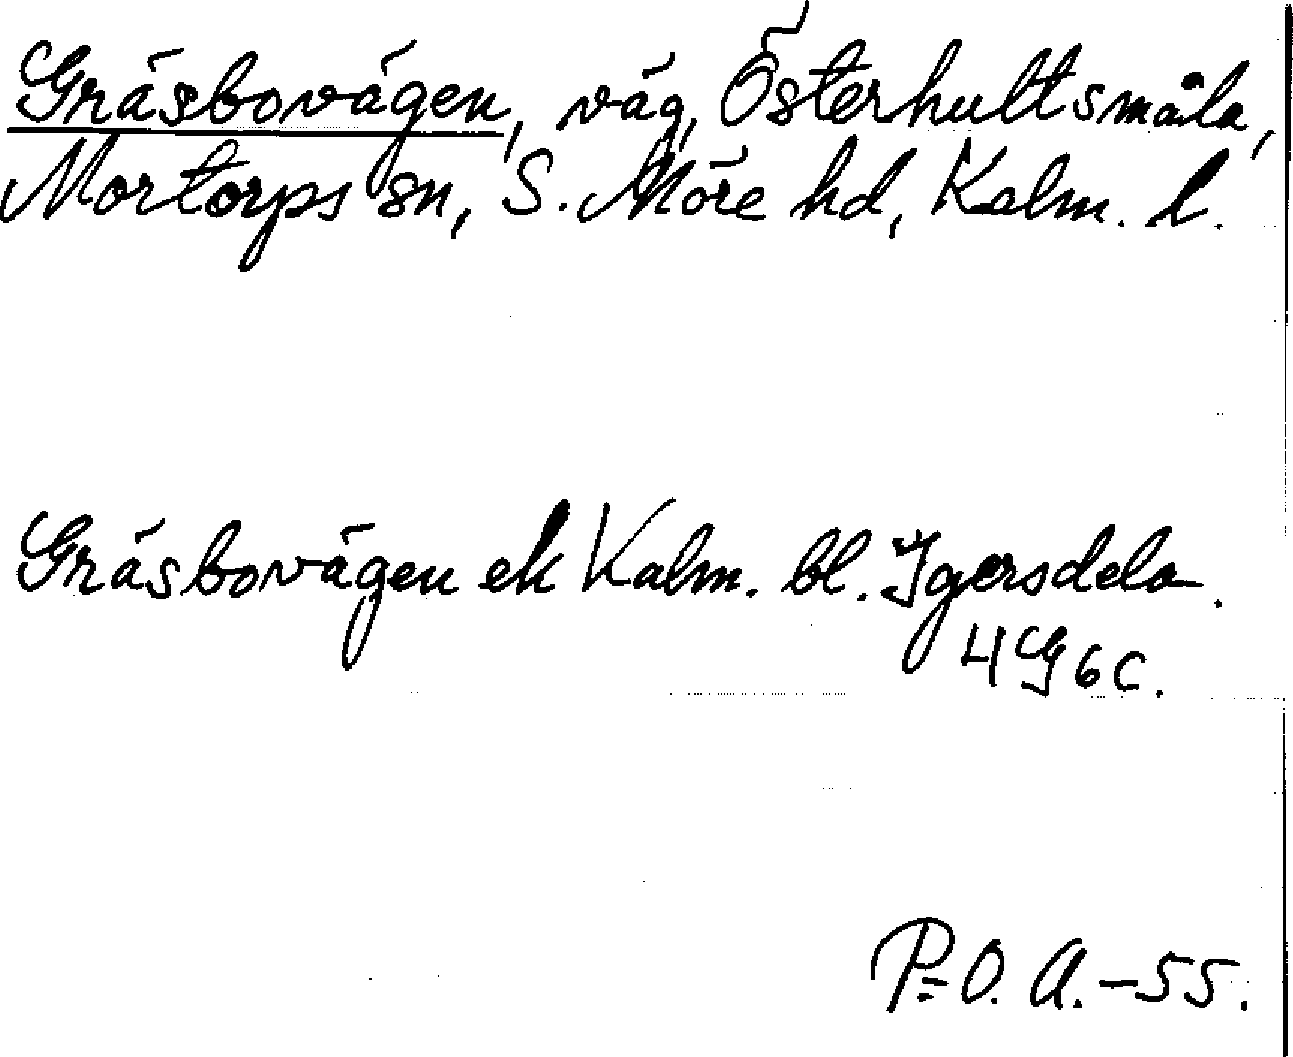 Gräsbovägen, väg, Österhultsmåla,
Mortorps sn, S. Möre hd, Kalm. l.
Gräsbovägen ek Kalm. bl. Igersdela.
4G6c.
P=O. A.-55.